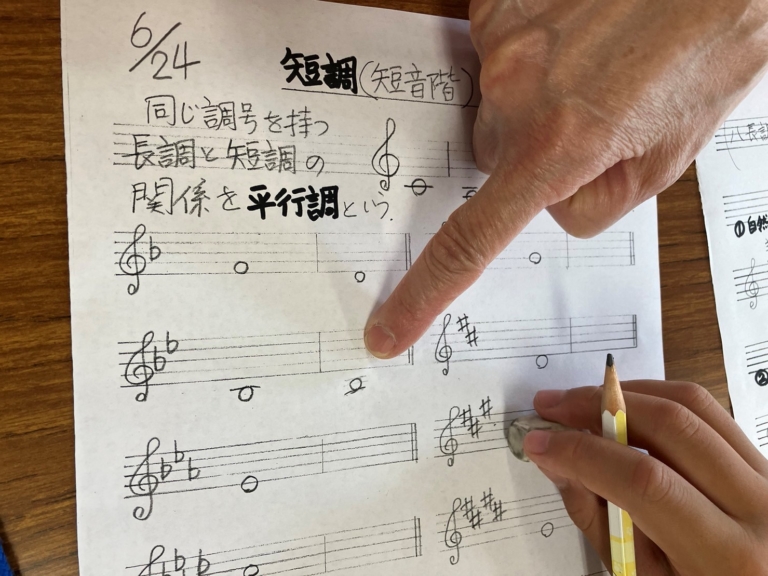 6/24
短調(短音階)
同じ調号を持つ
長調と短調の
関係を平行調という.
ハ長調
①自然
②